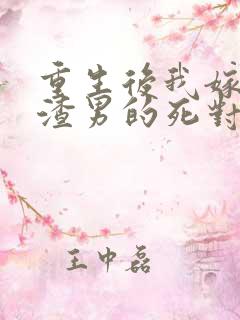 重生後我嫁
渣男的死對
王中磊